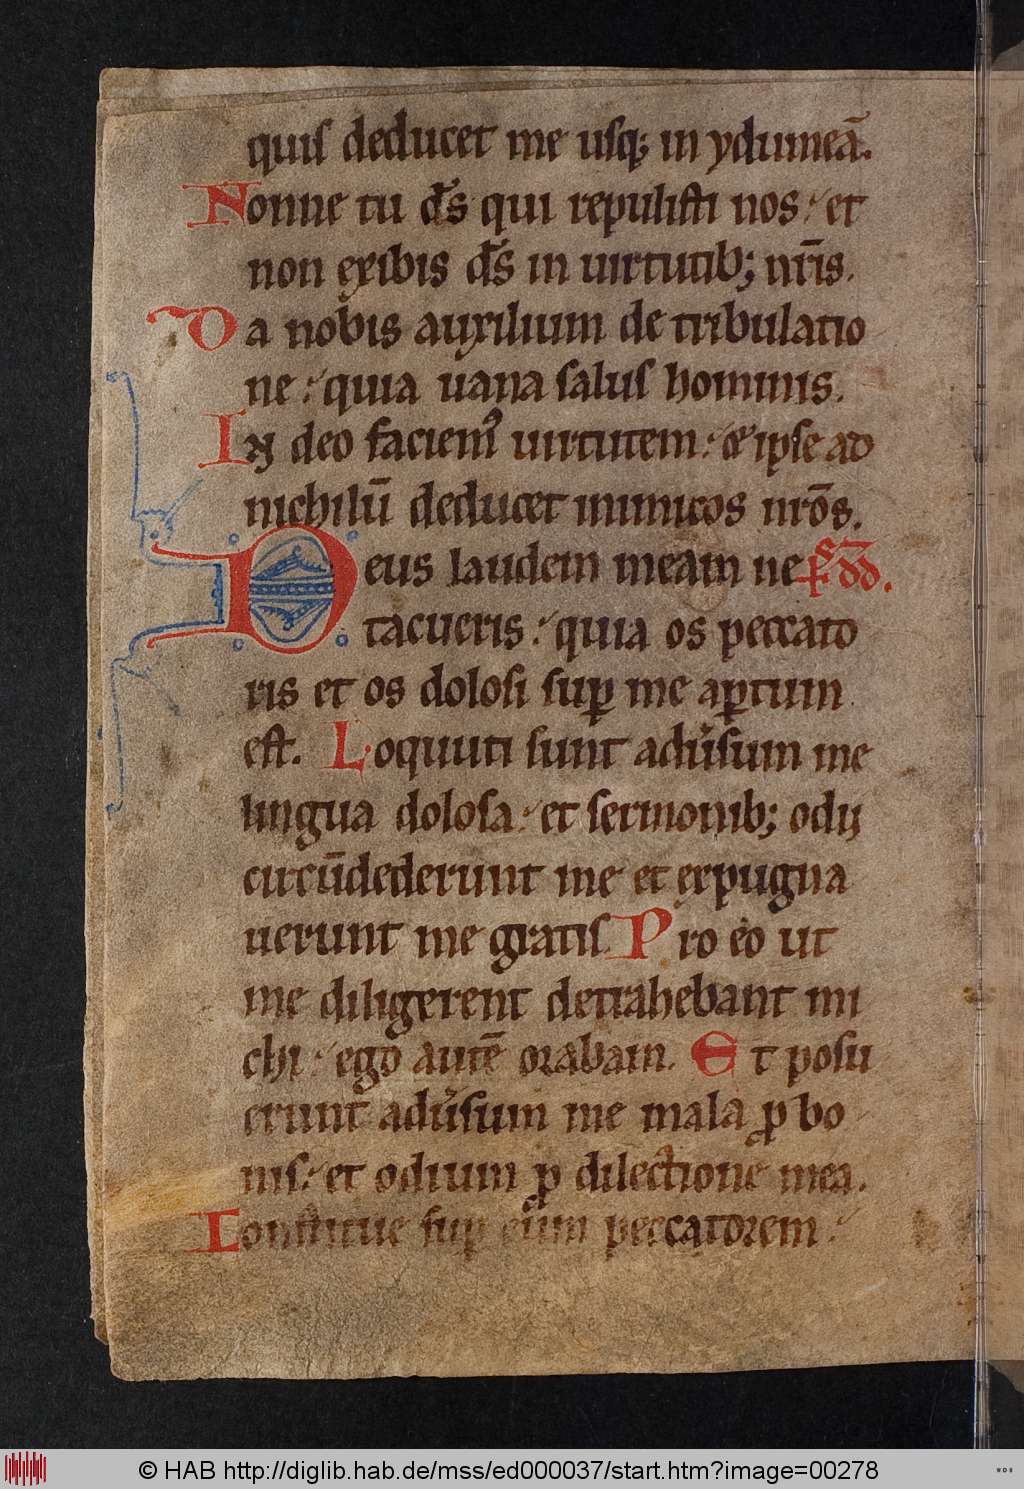 quis deducet me usq; in ydumeā.
Nonne tu d̄s qui repulisti nos: et
non exibis d̄s in uirtutib; nr̄is.
Da nobis auxilium de tribulatio
ne: quia uana salus hominis.
In deo faciem᷒ uirtutem: & ipse ad
nichilū deducet inimicos nr̄os.
Deus laudem meam ne
tacueris: quia os peccato
ris et os dolosi suꝑ me aꝑtum
est. Loquuti sunt adu̾sum me
lingua dolosa: et sermonib; odij
circūdederunt me et expugna
uerunt me gratis. Pro eo ut
me diligerent detrahebant mi
chi: ego autē orabam. Et posu
erunt adu̾sum me mala ꝓ bo
nis: et odium ꝓ dilectione mea.
Constitue suꝑ eum peccatorem:
© HAB http://diglib.hab.de/mss/ed000037/start.htm?image=00278